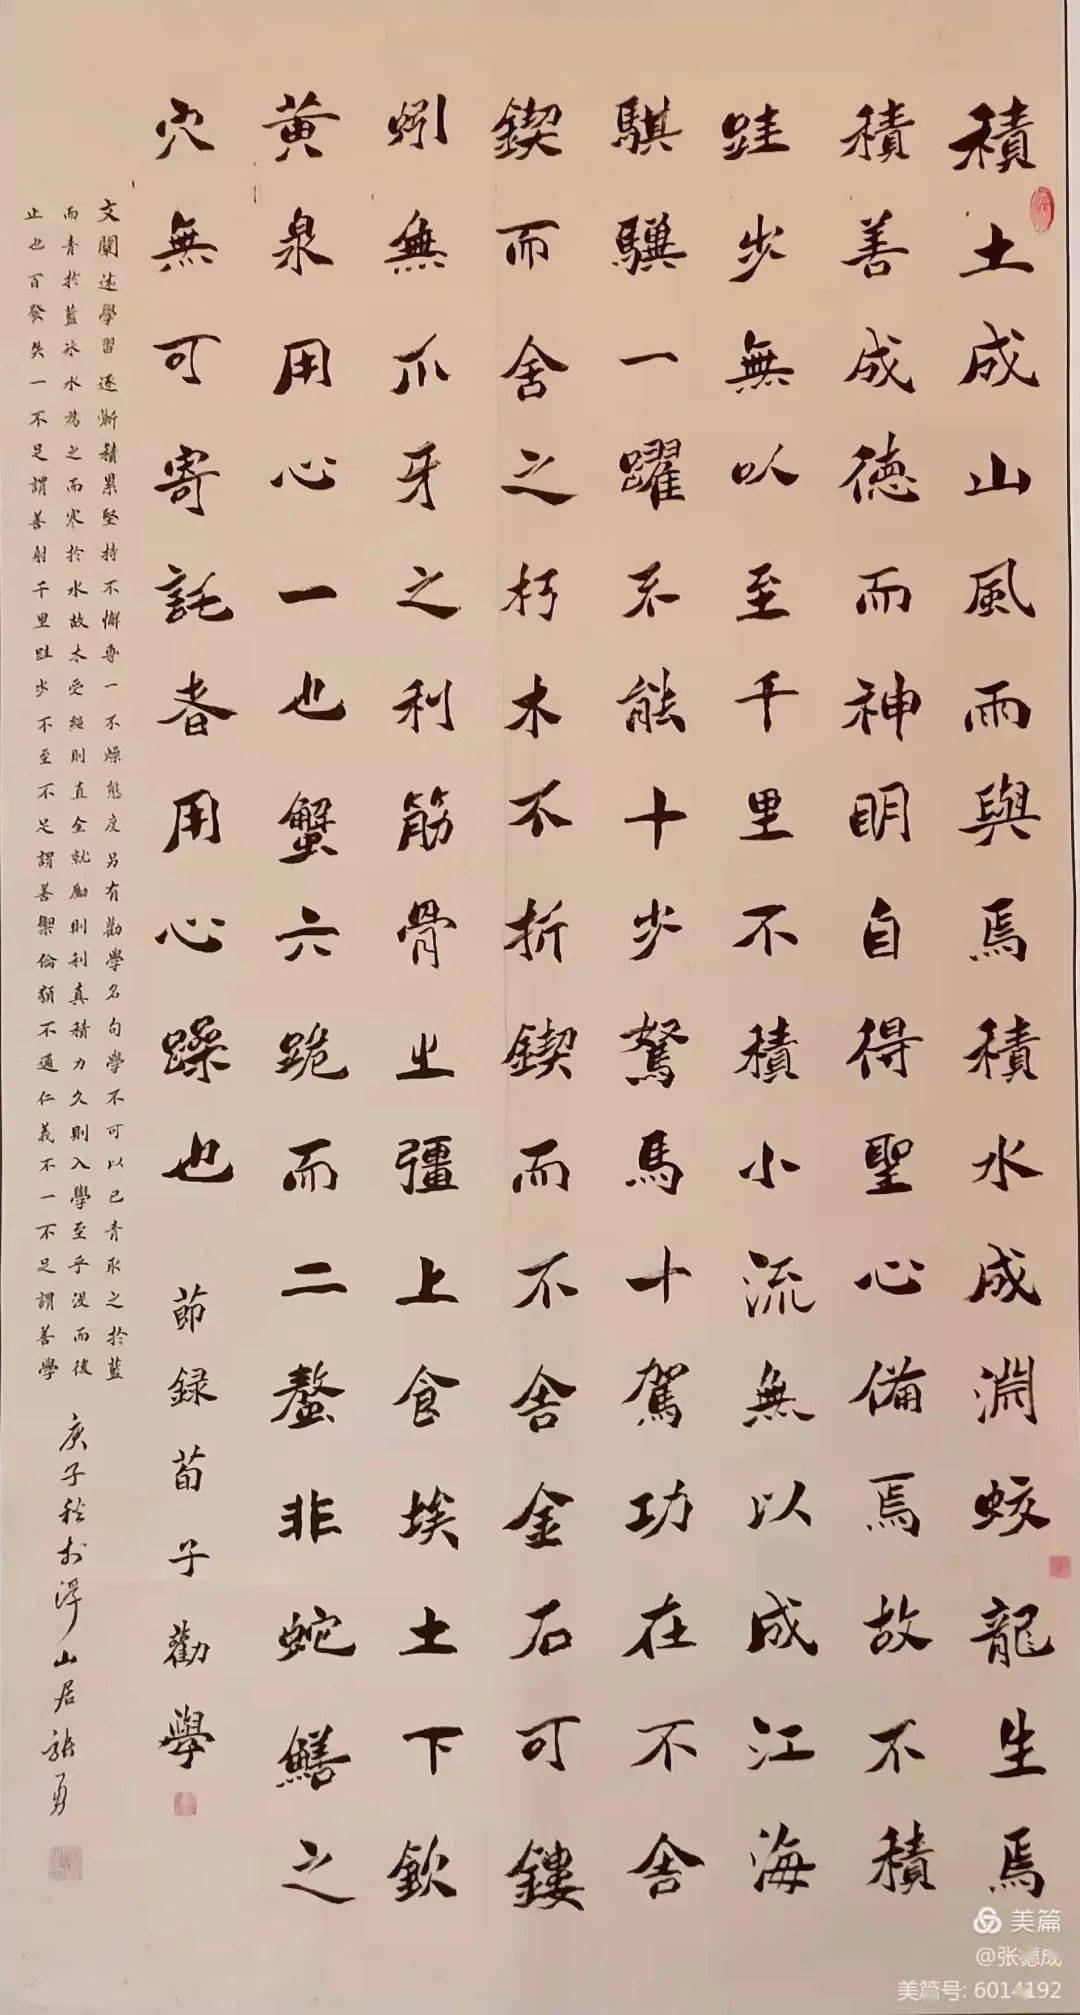 積土成山風雨與焉積水成淵蛟龍生焉
積善成德而神明自得聖心備焉故不積
跬步無以至千里不積小流無以成江海
騏驥一躍不能十步駑馬十駕功在不舍
鍥而舍之朽木不折鍥而不舍金石可鏤
蚓無爪牙之利筋骨之彊上食埃土下飲
黃泉用心一也蟹六跪而二螯非蛇鱔之
穴無可寄託者用心躁也
節録荀子勸學
文闡述學習逐漸積累堅持不懈專一不燥態度另有勸學名句學不可以已青取之於藍
而青於藍冰水為之而寒於水故木受繩則直金就勵則利真積力久則入學至乎沒而後
止也百發失一不足謂善射千里跬步不至不足謂善禦倫類不通仁義不一不足謂善學
庚子秋於浮山居張勇
美篇
@张德成
美篇号: 6014192